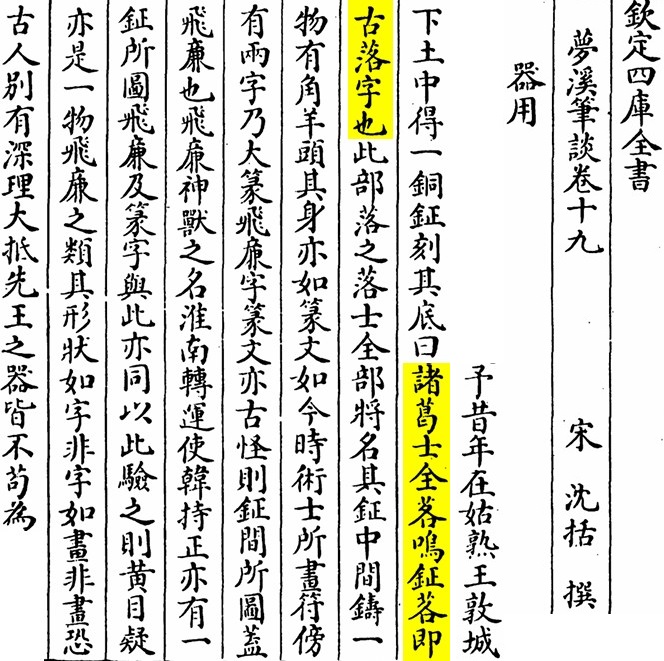 欽定四庫全書
夢溪筆談卷十九 宋 沈括 撰
器用
予昔年在姑熟王敦城
下土中得一銅鉦刻其底曰諸葛士全茖鳴鉦茖即
古落字也此部落之落士全部將名其鉦中間鑄一
物有角羊頭其身亦如篆文如今時術士所畫符傍
有兩字乃大篆飛廉字篆文亦古怪則鉦間所圖蓋
飛廉也飛廉神獸之名淮南轉運使韓持正亦有一
鉦所圖飛廉及篆字與此亦同以此驗之則黄目疑
亦是一物飛廉之類其形狀如字非字如畫非畫恐
古人别有深理大抵先王之器皆不苟為